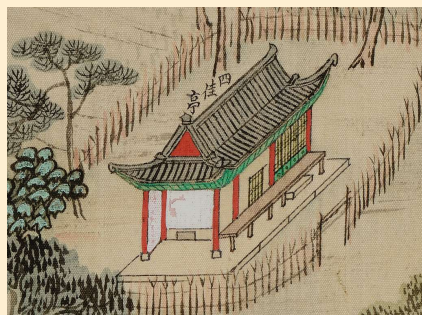 四佳亭